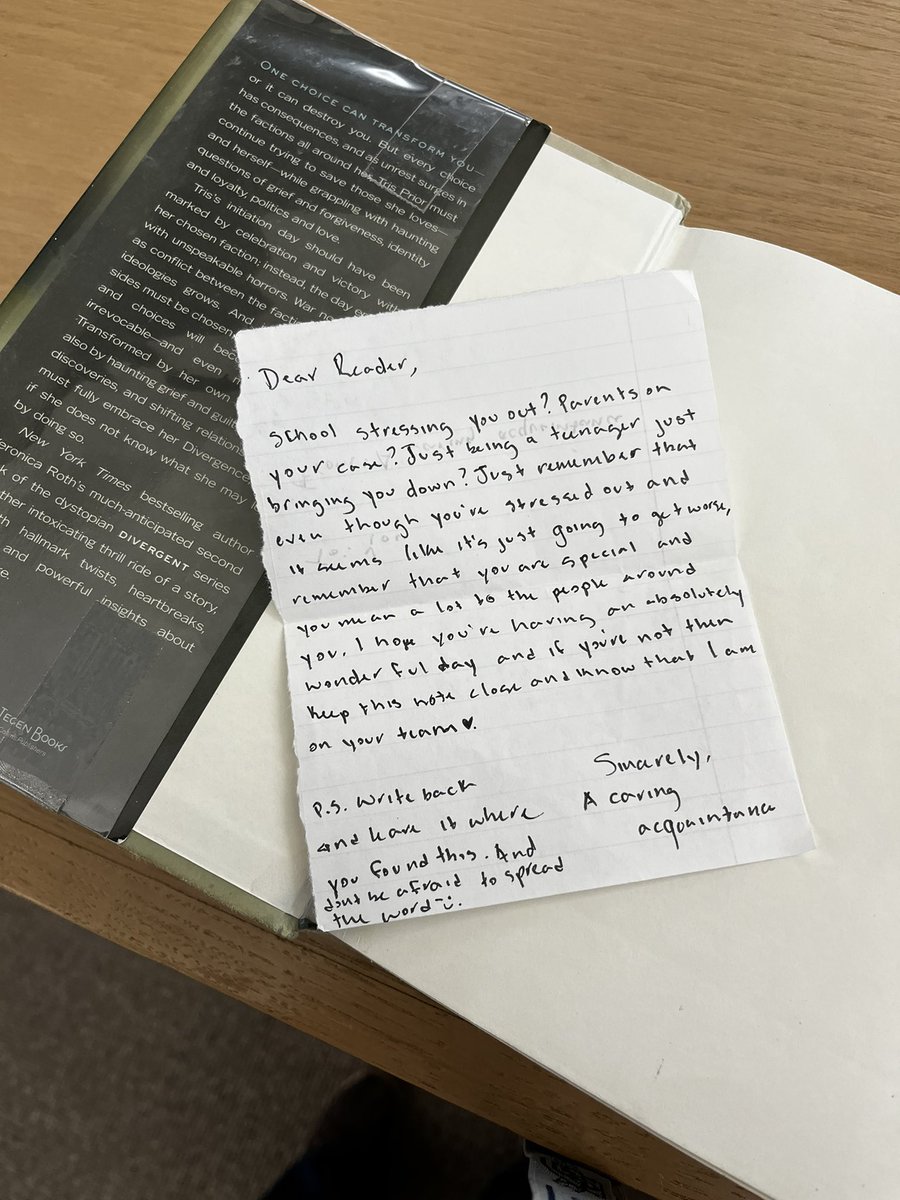 ONE CHOICE CAN TRANSFORM YOU—
or it can destroy you. But every choice
has consequences, and as unrest surges in
the factions all around her, Tris Prior must
continue trying to save those she loves—
and herself—while grappling with haunting
questions of grief and forgiveness, identity
and loyalty, politics and love.
Tris's initiation day should have been
marked by celebration and victory with
her chosen faction; instead, the day e
with unspeakable horrors. War no
as conflict between the facti
ideologies grows. And
sides must be chosen
and choices will bec
irrevocable—and even
Transformed by her own
also by haunting grief and guil
discoveries, and shifting relation
must fully embrace her Divergence
if she does not know what she may
by doing so.
New York Times bestselling author
eronica Roth's much-anticipated second
k of the dystopian DIVERGENT series
ther intoxicating thrill ride of a story,
h hallmark twists, heartbreaks,
and powerful insights about
e.
TEGEN BOOKS
Dear Reader,
School stressing you out? Parents on
your case? Just being a teenager just
bringing you down? Just remember that
even though you're stressed out and
it seems like it's just going to get worse,
remember that you are special and
you mean a lot to the people around
you. I hope you're having an absolutely
wonderful day and if you're not then
keep this note close and know that I am
on your team♥.
Sincarely,
A caring
acquaintance
P.S. Write back
and leave it where
you found this. And
dont be afraid to spread
the word :).